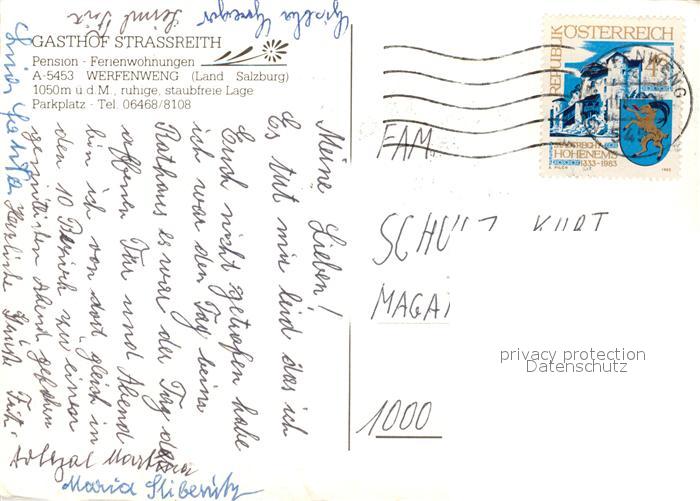 GASTHOF STRASSREITH
Pension - Ferienwohnungen
A-5453 WERFENWENG (Land Salzburg)
1050m ü.d.M., ruhige, staubfreie Lage
Parkplatz - Tel. 06468/8108
Meine Lieben!
Es tut mir leid das ich
Euch nicht getrofen habe
ich war den Tag beim
Rathaus es war der Tag der
offenen Tür und Abend
bin ich von dort gleich in
den 10 Bezirk zu einen
gemütlichen Abend gefahren
Herzliche Grüße Fritz
Martina
Maria
REPUBLIK ÖSTERREICH
STADTRECHT
HOHENEMS
1333-1983
FAM.
SCHULZ KURT
MAGA
1000
privacy protection
Datenschutz